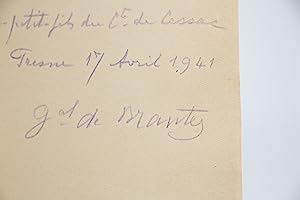 -petit-fils du Cte de Cessac
Fresne 17 Avril 1941
Gal de Brantes